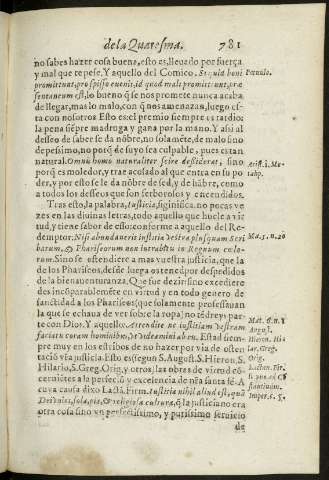 de la Quaresma. 781
no sabes hazer cosa buena, esto es, lleuado por fuerça,
y mal que te pese. Y aquello del Comico. Si quid boni
promittunt, pro spisso euenit, id quod mali promittunt, præ
sentaneum est, lo bueno q̃ se nos promete nunca acaba,
de llegar, mas lo malo, con q̃ nos amenazan, luego es-
ta con nosotros Esto es: el premio siempre es tardio:
la pena siẽpre madruga y gana por la mano. Y assi al
desseo de saber se da nõbre, no solamẽte, de malo sino
de pesimo, no porq̃ de suyo sea culpable, pues es tan
natural. Omnis homo naturaliter scire desiderat, sino
porq̃ es moledor, y trae acosado al que entra en su po
der, y por esso se le da nõbre de sed, y de hãbre, como
a todos los desseos que son feruorosos y encendidos.
Tras esto, la palabra, Iustitia, significa, no pocas ve
zes en las diuinas letras, todo aquello que huele a vir
tud, y tiene sabor de esso: conforme a aquello del Re-
demptor: Nisi abundaueris iustitia vestra plusquam Scri
barum, & Phariseorum non intrabitis in Regnum cælo-
rum. Sino se estendiere a mas vuestra justicia, que la
de los Phariseos, desde luego os tened por despedidos
de la bienauenturança. Que fue dezir: sino excedie re
des incõparablemẽte en virtud y en todo genero de
sanctidad a los Phariseos (que solamente professauan
la que se echaua de ver sobre la ropa) no tẽdreys par-
te con Dios. Y aquello. Attendite ne iustitiam vestram
faciatis coram hominibus, vt videamini ab eis. Estad siem-
pre muy en los estribos de no hazer por via de osten
tació vr̃a justicia. Esto es (segun S. August. S. Hieron. S.
Hilario, S. Greg. Orig. y otros, las obras de virtud cõ-
cerniẽtes a la perfecciõ y excelencia de nr̃a santa fè. A
cuya causa dixo Lactã. Firm. Iustitia nihil aliud est, quã
Dei vnius, sola, pia, & religiosa cultura, q̃ la justicia no era
otra cosa sino vn perfectissimo, y purissimo seruicio
de
Pœnulo.
Arist. 1. Me-
taph.
Mat. 5. n. 20
Mat. 6. n. 1
August.
Hieron. Hi
lar. Greg.
Orig.
Lactan. Fir.